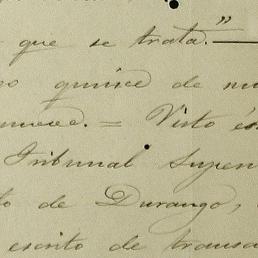 que se trata."—
quince de
= Visto
Tribunal Super
to de Durango,
escrito de transa